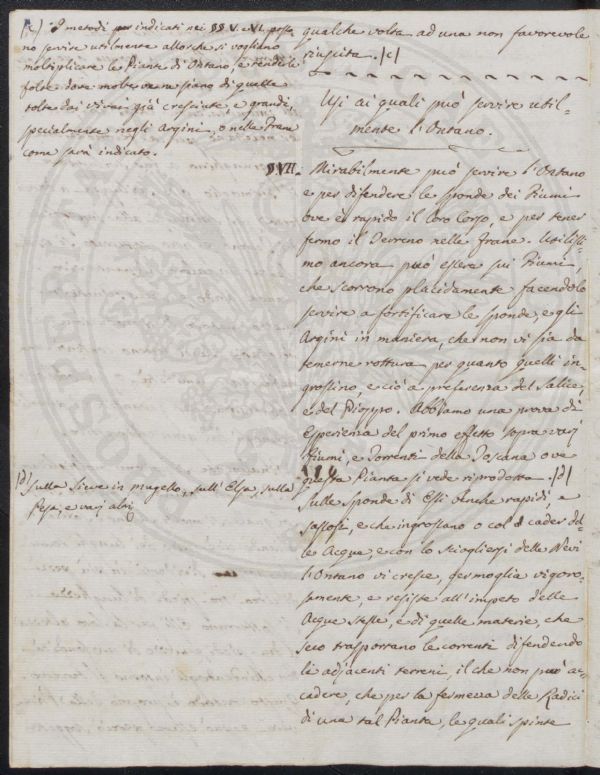 (c) I metodi indicati nei §§ V. e VI. posso
no servire utilmente allorchè si vogliano
moltiplicare le Piante di Ontano, e renderle
folte dove molte ne siano di quelle
tolte dai Vivai già cresciute, e grandi,
specialmente negli Argini, o nelle Frane
come sarà indicato.
qualche volta ad una non favorevole
riuscita. (c)
Usi ai quali può servire util=
mente l'Ontano.
§ VII. Mirabilmente può servire l'Ontano
e per difendere le sponde dei Fiumi
ove è rapido il loro Corso, e per tener
fermo il Terreno nelle Frane. Utilissi=
mo ancora può essere sui Fiumi,
che scorrono placidamente facendolo
servire a fortificare le sponde, e gli
Argini in maniera, che non vi sia da
temerne rottura per quanto quelli in=
grossino, e ciò a preferenza del Salice,
e del Pioppo. Abbiamo una prova di
Esperienza del primo effetto sopra varj
Fiumi, e Torrenti della Toscana ove
questa Pianta si vede riprodotta. (d)
(d) Sulla Sieve in Mugello, sull'Elsa, sulla
Pesa, e varj altri
Sulle Sponde di Essi benche rapidi, e
sassosi, e che ingrossano o col cader del=
le Acque, e con lo sciogliersi delle Nevi
l'Ontano vi cresce, germoglia vigoro=
samente, e resiste all'impeto delle
Acque stesse, e di quelle materie, che
seco trasportano le correnti difendendo
li adjacenti terreni, il che non può ac=
cadere, che per la fermezza delle Radici
di una tal Pianta, le quali spinte